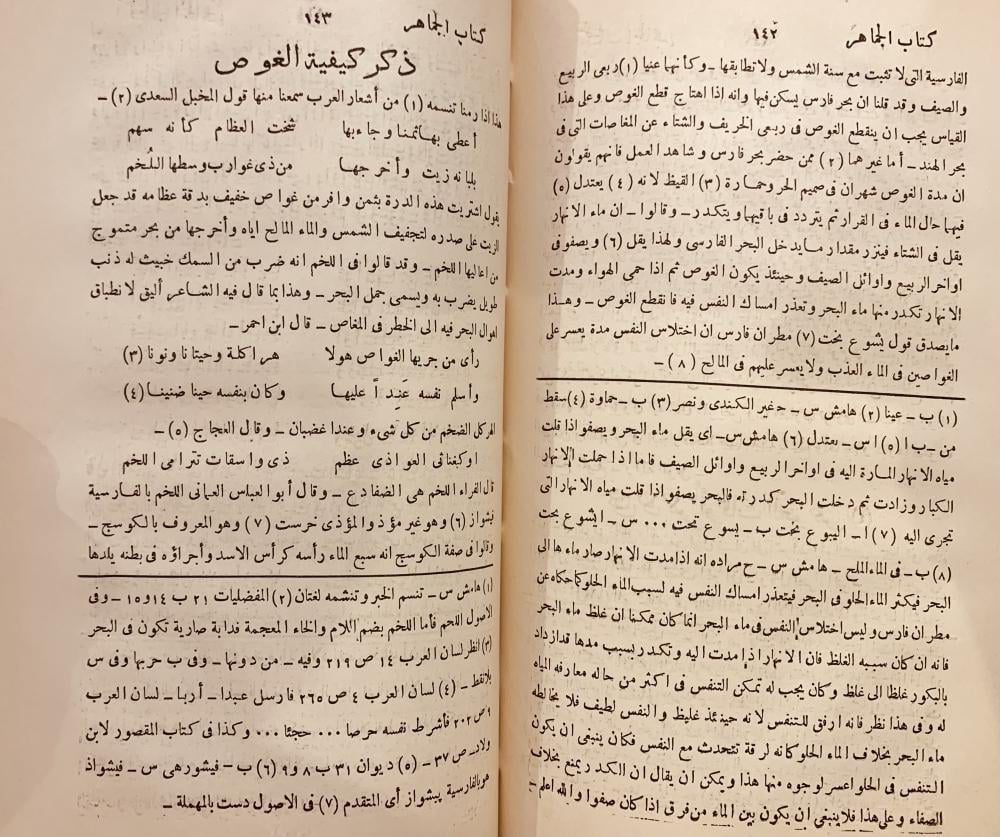 كتاب الجماهر ١٤٢
الفارسية التى لا تثبت مع سنة الشمس ولا تطابقها ـ وكأنهما عنيا (١) ربعى الربيع
والصيف وقد قلنا ان بحر فارس يسكن فيها وانه اذا اهتاج قطع الغوص وعلى هذا
القياس يجب ان ينقطع الغوص فى ربعى الخريف والشتاء عن المغاصات التى فى
بحر الهند ـ أما غيرهما (٢) ممن حضر بحر فارس وشاهد العمل فانهم يقولون
ان مدة الغوص شهران فى صميم الحر وحمارة (٣) القيظ لانه (٤) يعتدل (٥)
فيهما حال الماء فى القرار ثم يتردد فى باقيها ويتكدر ـ وقالوا ـ ان ماء الانهار
يقل فى الشتاء فينزر مقدار ما يدخل البحر الفارسى ولهذا يقل (٦) ويصفو فى
اواخر الربيع واوائل الصيف وحينئذ يكون الغوص ثم اذا حمى الهواء ومدت
الانهار تكدر منها ماء البحر وتعذر امساك النفس فيه فانقطع الغوص ـ وهذا
ما يصدق قول يشوع بخت (٧) مطران فارس ان اختلاس النفس مدة يعسر على
الغواصين فى الماء العذب ولا يعسر عليهم فى المالح (٨) ـ
(١) ب ـ عينا (٢) هامش س ـ ح غير الكندى ونصر (٣) ب ـ حماوة (٤) سقط
من ـ ب (٥) ا س ـ بعتدل (٦) هامش س ـ اى يقل ماء البحر ويصفو اذا قلت
مياه الانهار المارة اليه فى اواخر الربيع واوائل الصيف فاما اذا حملت الانهار
الكبار وزادت ثم دخلت البحر كدرته فالبحر يصفو اذا قلت مياه الانهار التى
تجرى اليه (٧) ا ـ اليبوع بخت ب ـ يسوع تحت ... س ـ ايشوع بحت
(٨) ب ـ فى الماء الملح ـ هامش س ـ ح مراده إنه اذا مدت الانهار صار ماءها الى
البحر فيكثر الماء الحلو فى البحر فيتعذر امساك النفس فيه لسبب الماء الحلو كما حكاه عن
مطران فارس وليس اختلاس النفس فى ماء البحر انما كان ممكنا ان غلظ ماء البحر
فانه ان كان سببه الغلظ فان الانهار اذا مدت اليه وتكدر بسبب مدها قد ازداد
بالبكور غلظا الى غلظ وكان يجب له تمكن التنفس فى اكثر من حاله معارفه المياه
له وفى هذا نظر فانه ارفق للتنفس لانه حينئذ غليظ والنفس لطيف فلا يخالطه
ماء البحر بخلاف الماء الحلو كمانه لرقة تتحدث مع النفس فكان ينبغى ان يكون
التنفس فى الحلو اعسر لوجوه منها هذا ويمكن ان يقال ان الكدر يمنع بخلاف
الصفاء وعلى هذا فلا ينبغى ان يكون بين الماء من فرق اذا كان صفوا والله اعلم ـ
كتاب الجماهر ١٤٣
ذكر كيفية الغوص
هذا اذا رمنا تنسمه (١) من أشعار العرب سمعنا منها قول المخبل السعدى (٢) ـ
أعطى بها ثمنا وجاء بها شخت العظام كأنه سهم
بلبانه زيت وأخرجها من ذى غوارب وسطها اللُخم
يقول اشتريت هذه الدرة بثمن وافر من غواص خفيف بدقة عظامه قد جعل
الزيت على صدره لتجفيف الشمس والماء المالح اياه وأخرجها من بحر متموج
من اعاليها اللخم ـ وقد قالوا فى اللخم انه ضرب من السمك خبيث له ذنب
طويل يضرب به ويسمى جمل البحر ـ وهذا بما قال فيه الشاعر أليق لانطباق
اهوال البحر فيه الى الخطر فى المغاص ـ قال ابن احمر ـ
رأى من جريها الغواص هولا هراكلة وحيتانا ونونا (٣)
وأسلم نفسه عَنِداً عليها وكان بنفسه حينا ضنينا (٤)
الهركل الضخم من كل شىء وعندا غضبان ـ وقال العجاج (٥) ـ
او كبغنائى العواذى عظم ذى واسقات تترامى اللخم
قال الفراء اللخم هى الضفادع ـ وقال أبو العباس العمانى اللخم بالفارسية
فيشواز (٦) وهو غير مؤذ والمؤذى خرست (٧) وهو المعروف بالكوسج ـ
وقالوا فى صفة الكوسج انه سبع الماء رأسه كرأس الاسد وأجراؤه فى بطنه يلدها
(١) هامش س ـ تنسم الخبر وتنشمه لغتان (٢) المفضليات ٢١ ب ١٤ و١٥ ـ وفى
الاصول اللحم فأما اللخم بضم اللام والخاء المعجمة فدابة ضارية تكون فى البحر
(٣) انظر لسان العرب ١٤ ص ٢١٩ وفيه ـ من دونها ـ وفى ب حربها وفى س
بلانقط ـ (٤) لسان العرب ٤ ص ٢٦٥ فارسل عبدا ـ أربا ـ لسان العرب
٩ ص ٢٠٢ فأشرط نفسه حرصا ... حجئا ... وكذا فى كتاب المقصور لابن
ولاد ص ٣٧ ـ (٥) ديوان ٣١ ب ٨ و٩ (٦) ب ـ فيشورهى س ـ فيشواذ
هو بالفارسية پيشواز أى المتقدم (٧) فى الاصول دست بالمهملة ـ